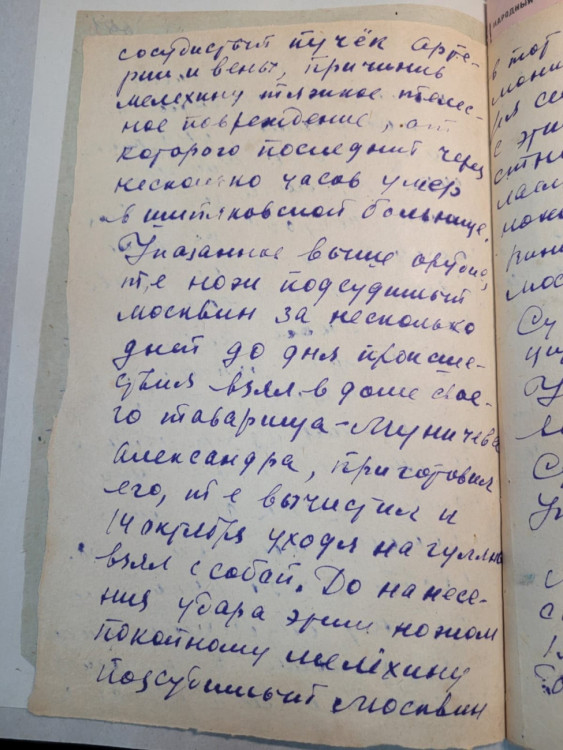 сосудистый пучёк арте-
рии и вены, причинив
Мелёхину тяжкое телес-
ное повреждение, от
которого последний через
несколько часов умер
в Шитковской больнице.
Указанное выше орудие,
т.е нож подсудимый
Москвин за несколько
дней до дня происше-
ствия взял в доме свое-
го товарища - Муничева
Александра, приготовил
его, т е вычистил и
14 октября уходя на гуляние
взял с собай. До нанесе-
ния удара этим ножом
покойному Мелёхину
подсудимый Москвин
народный